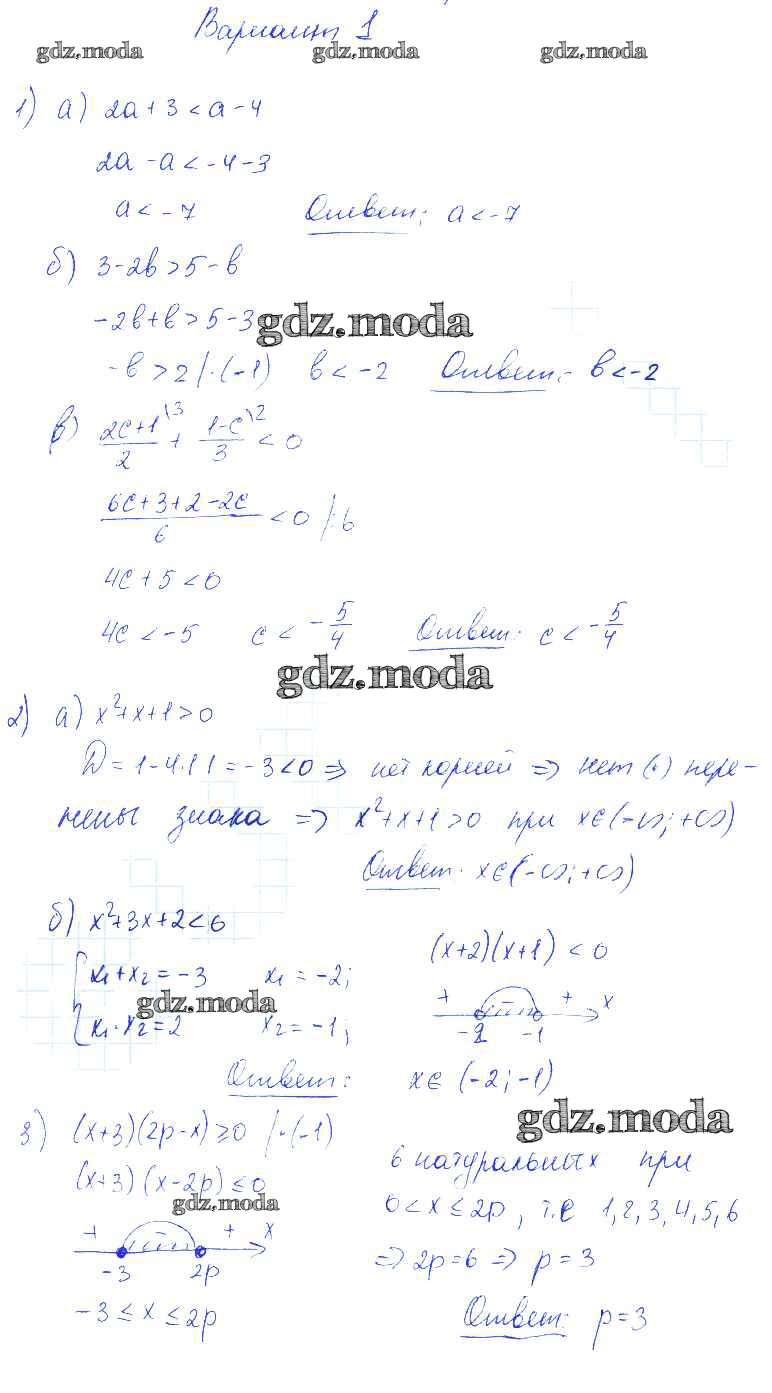 Вариант 1
gdz.moda gdz.moda gdz.moda
1) а) 2a + 3 < a - 4
2a - a < -4 - 3
a < -7 Ответ: a < -7
б) 3 - 2b > 5 - b
-2b + b > 5 - 3
gdz.moda
-b > 2 | · (-1) b < -2 Ответ: b < -2
в) (2c+1)/2 \3 + (1-c)/3 \2 < 0
(6c + 3 + 2 - 2c)/6 < 0 | · 6
4c + 5 < 0
4c < -5 c < -5/4 Ответ: c < -5/4
gdz.moda
2) а) x² + x + 1 > 0
D = 1 - 4·1·1 = -3 < 0 => нет корней => нет (·) пере-
мены знака => x² + x + 1 > 0 при x∈(-∞; +∞)
Ответ: x∈(-∞; +∞)
б) x² + 3x + 2 < 6
{ x₁ + x₂ = -3 x₁ = -2;
x₁ · x₂ = 2 x₂ = -1;
gdz.moda
(x+2)(x+1) < 0
+ - + x
-2 -1
Ответ: x∈ (-2; -1)
3) (x+3)(2p-x) ≥ 0 | · (-1)
gdz.moda
(x+3)(x-2p) ≤ 0
gdz.moda
+ - + x
-3 2p
-3 ≤ x ≤ 2p
6 натуральных при
0 < x ≤ 2p, т.е 1, 2, 3, 4, 5, 6
=> 2p = 6 => p = 3
Ответ: p = 3